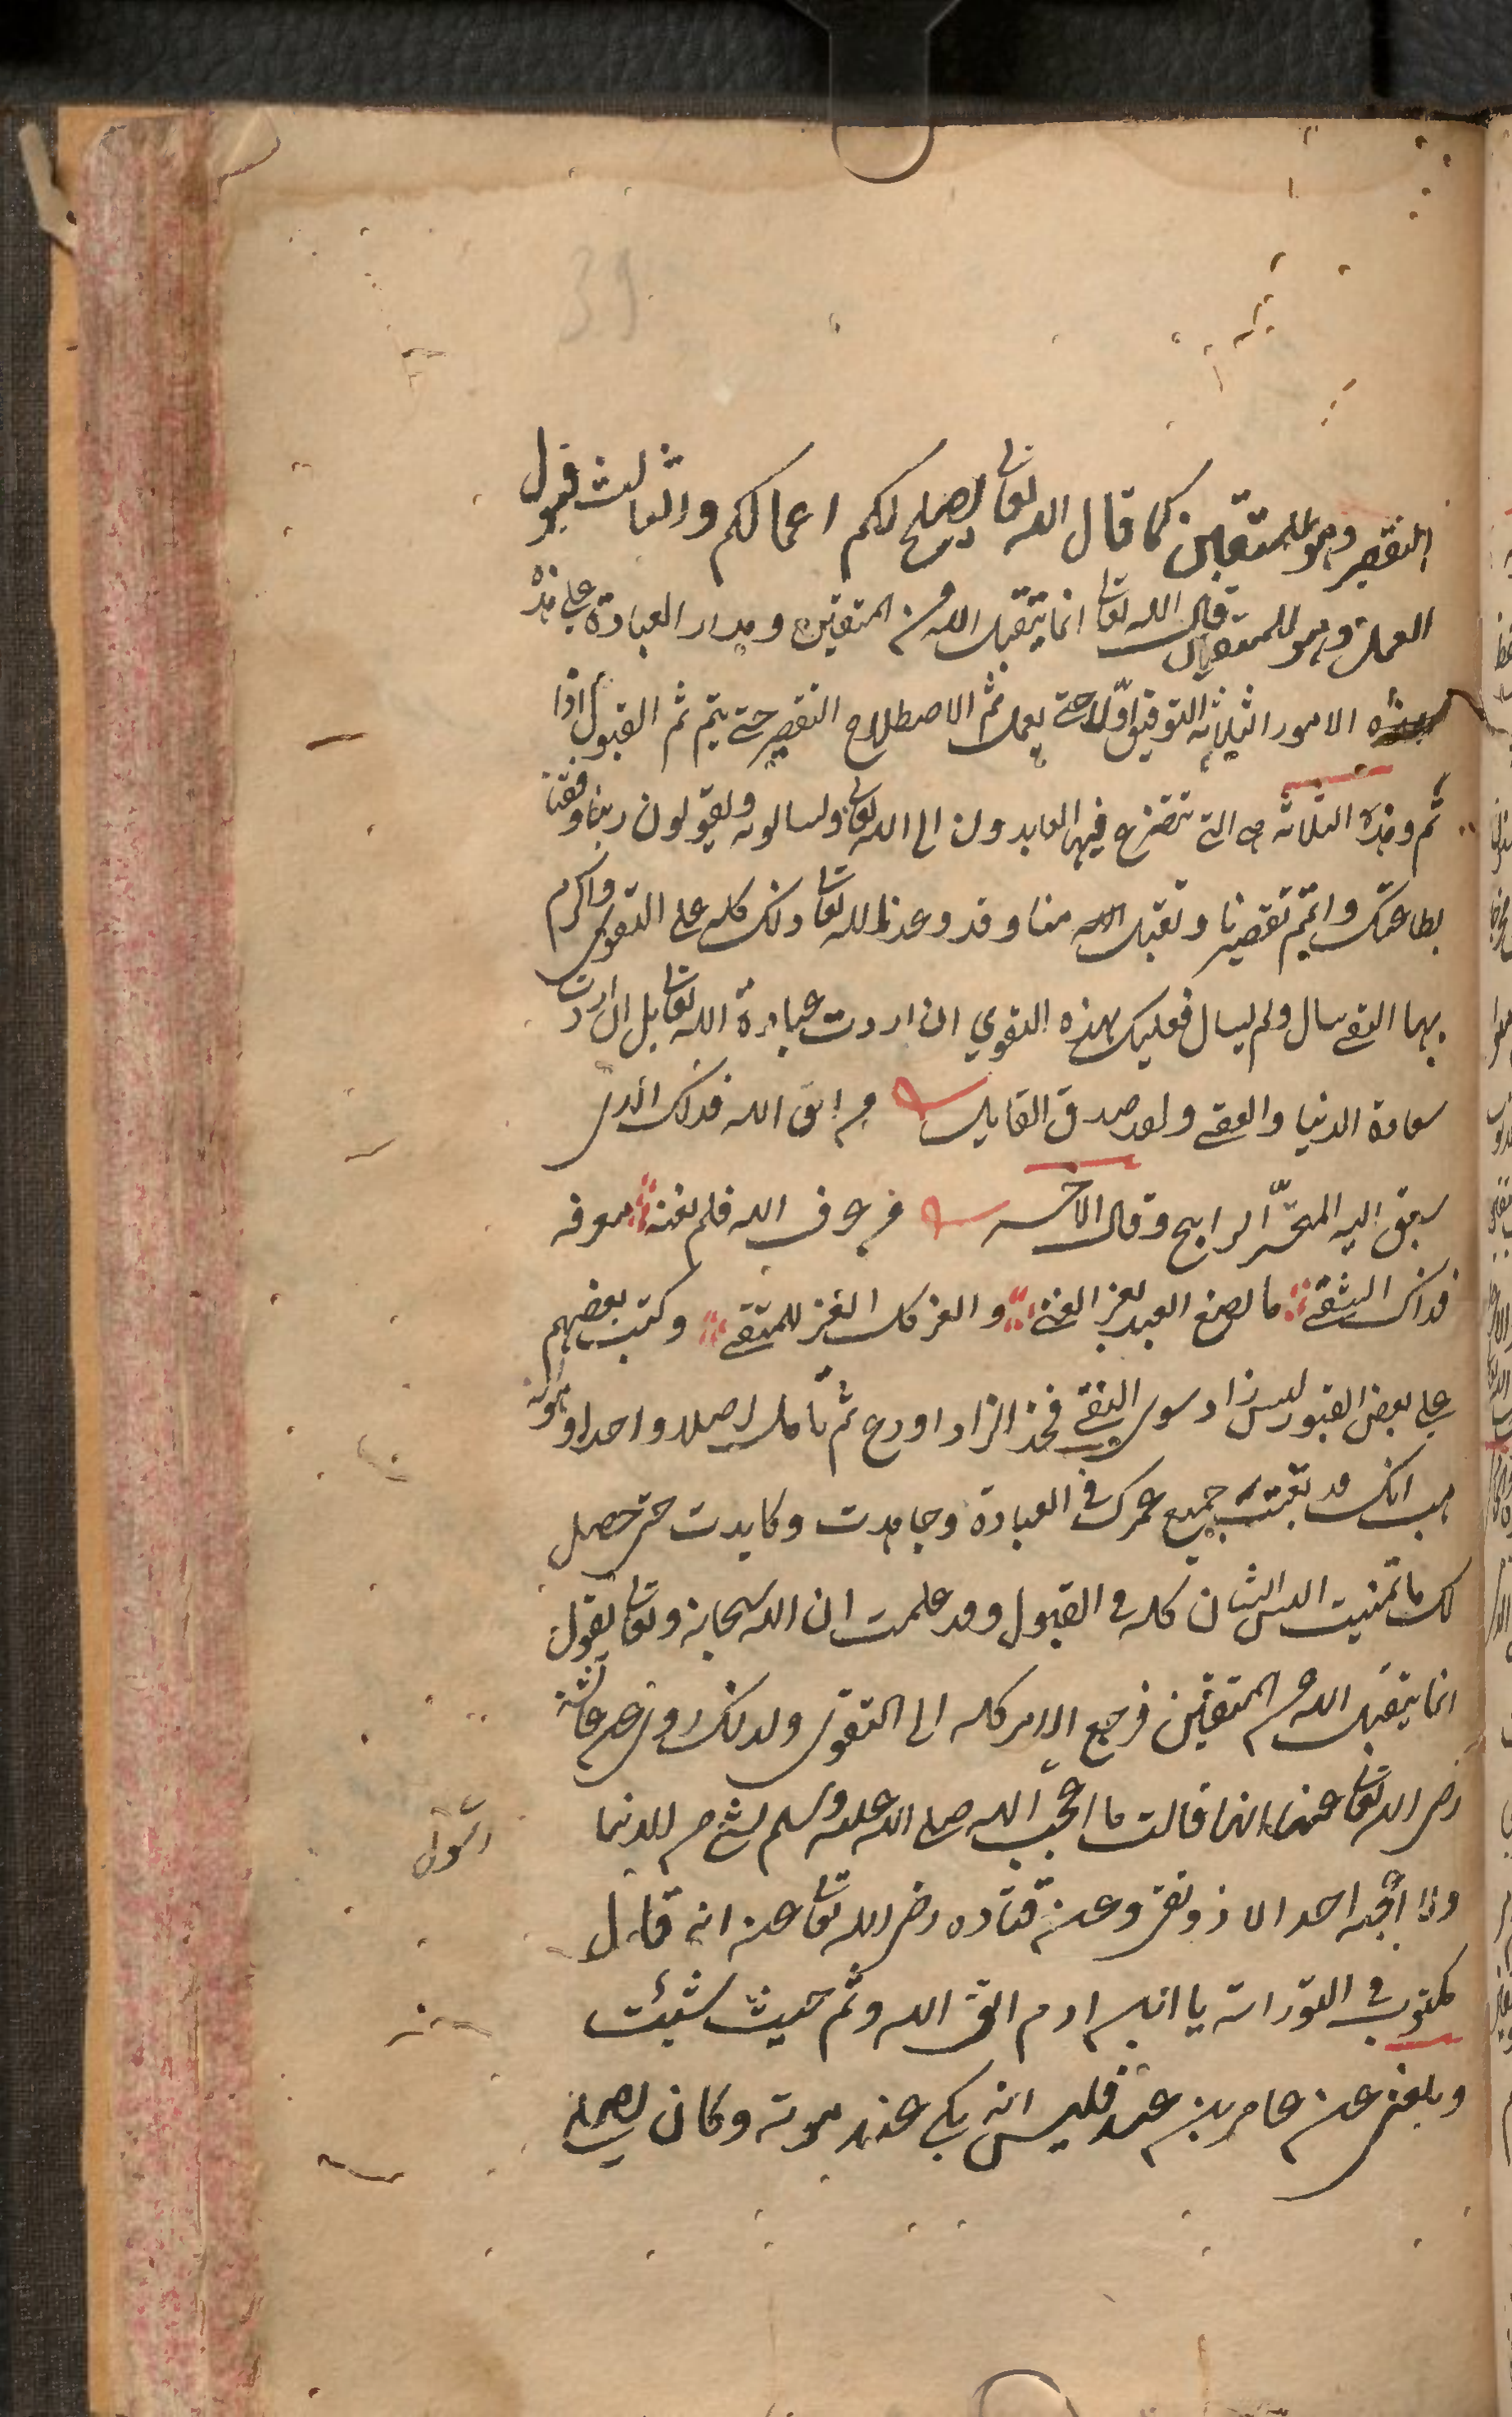 39
التقصير وهو للمتقين كما قال الله تعا يصلح لكم اعمالكم والثالث قبول
العمل وهو للمتقين قال الله تعا انما يتقبل الله من المتقين ومدار العبادة على هذه
الامور الثلاثه التوفيق اوّلا حتى يعمل ثم الاصطلاح التقصير حتى يتم ثم القبول اذا
تم وهذه الثلاثه هى التى تتضرع فيها العابدون الى الله تعا ويسالونه ويقولون ربنا وفقنا
بطاعتك واتمم تقصيرنا وتقبل منا وقد وعدنا الله تعا ذلك كله على التقوى واكرم
بهما التقى سال ولم يسال فعليك بهذه التقوي ان اردت عبادة الله تعا بل ان اردت
سعادة الدنيا والعقبى ولقد صدق القايل من اتق الله فذاك الذى
سيق اليه المتجر الرابح وقال الاخر من عرف الله فلم تغنه معرفه
فذاك الشقى ما يصنع العبد بعز الغنى والعز كل العز للمتقى وكتب بعضهم
على بعض القبور ليس زاد سوى التقى فخذ الزاد او دع ثم تامل اصلا واحدا وهو انه
هب انك قد تعبت جميع عمرك فى العبادة وجاهدت وكابدت حتى حصل
لك ما تمنيت اليس الشان كله فى القبول وقد علمت ان الله سبحانه وتعا يقول
انما يتقبل الله من المتقين فرجع الامر كله الى التقوى ولذلك روى عن عائشة
رضى الله تعا عنها انها قالت ما اعجب الله صلى الله عليه وسلم بشئ من الدنيا
رسول
ولا اعجبه احد الا ذو تقى وعن قتاده رضى الله تعا عنه انه قال
مكتوب فى التوراته يا ابن ادم اتق الله ونم حيث شئت
وبلغنى عن عامر بن عبد قيس انه بكى عند موته وكان يصلى